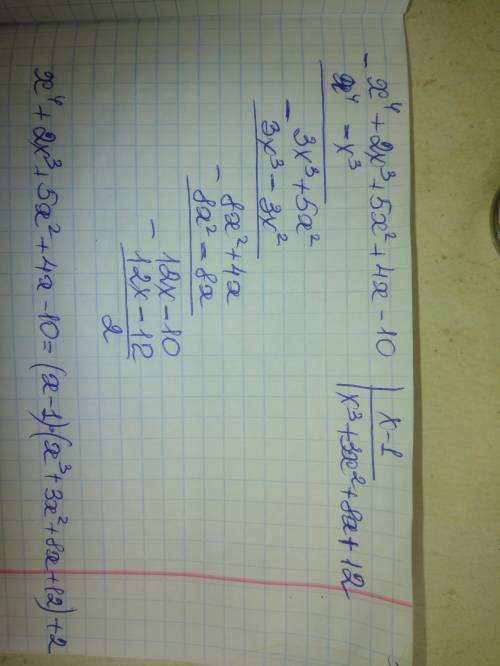 - x⁴ + 2x³ + 5x² + 4x - 10 | x - 1
x⁴ - x³ | x³ + 3x² + 8x + 12
- 3x³ + 5x²
3x³ - 3x²
- 8x² + 4x
8x² - 8x
- 12x - 10
12x - 12
2
x⁴ + 2x³ + 5x² + 4x - 10 = (x - 1)·(x³ + 3x² + 8x + 12) + 2